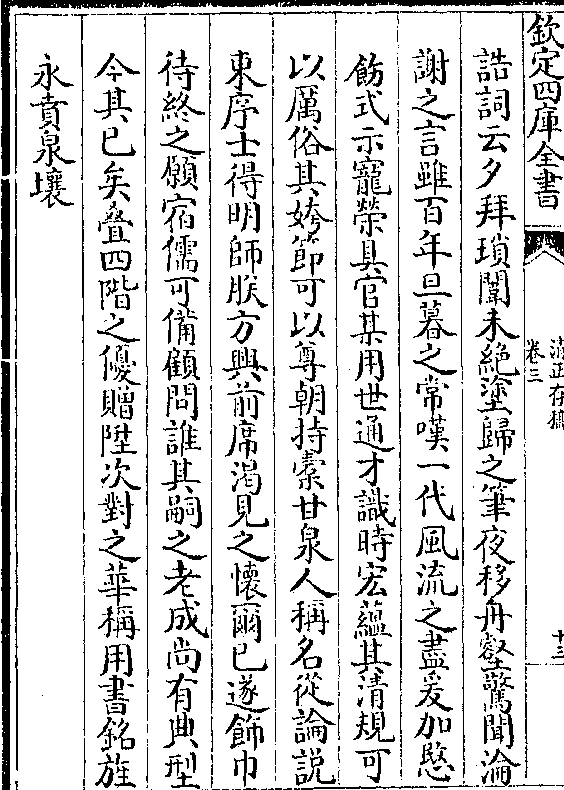 欽定四庫全書
清正存稿
卷三
十三
誥詞云夕拜瑣闈未絶塗歸之筆夜移舟壑驚聞淪
謝之言雖百年旦暮之常嘆一代風流之盡爰加愍
飭式示寵榮具官某用世通才識時宏蘊其清規可
以厲俗其姱節可以尊朝持槖甘泉人稱名從論説
東序士得明師朕方興前席渴見之懷爾已遂飾巾
待終之願宿儒可備顧問誰其嗣之老成尚有典型
今其已矣疊四階之優贈陞次對之華稱用書銘旌
永賁泉壤